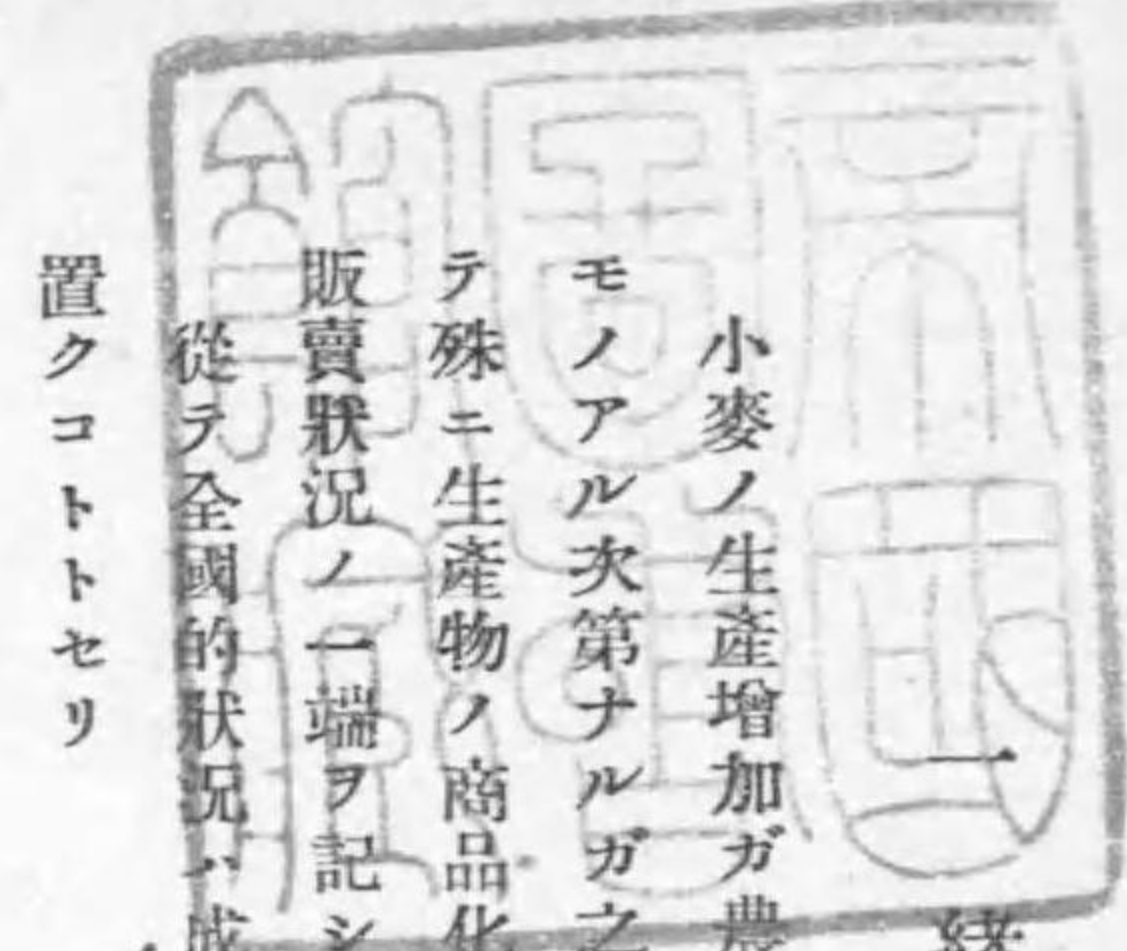 一
小麥ノ生產增加ガ農
モノアル次第ナルガ之
テ殊ニ生產物ノ商品化
販賣狀況ノ一端ヲ記シ
從テ全國的狀況ハ
置クコトトセリ